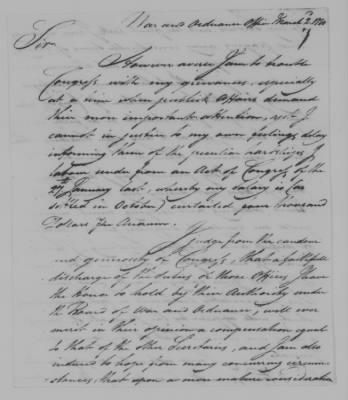 War and Ordnance Office March 2. 1780
Sir
However averse I am to trouble
Congress with my grievances, especially
at a time when publick affairs demand
their more important attention, yet I
cannot in justice to my own feelings delay
informing them of the peculiar hardships I
labour under from an Act of Congress of the
27th January last, whereby my salary is (as
settled in October) curtailed four thousand
Dollars Per Annum.
I judge from the candour
and generosity of Congress, that a faithfull
discharge of the duties of those Offices I have
the honor to hold by their Authority under
the Board of War and Ordnance, will ever
merit in their opinion a compensation equal
to that of the other Secretaries, and I am also
induced to hope from many concurring circum-
stances, that upon a more mature consideration